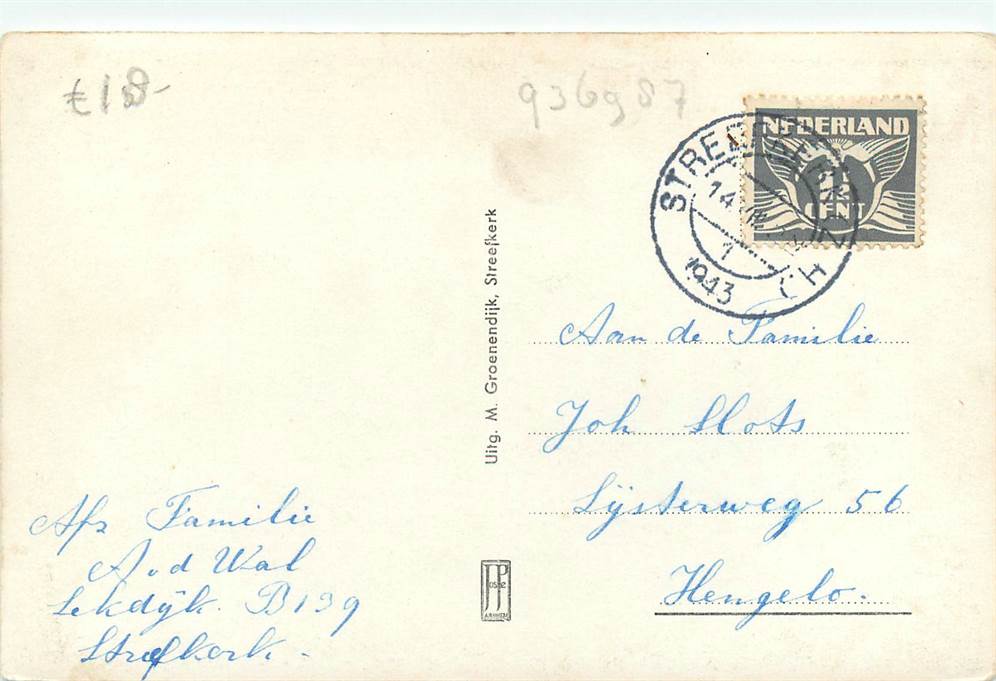 €18-
936987
NEDERLAND
1½
CENT
1943
Uitg. M. Groenendijk, Streefkerk
Aan de Familie
Joh Slots
Lijsterweg 56
Hengelo.
Afz Familie
A v d Wal
Lekdijk B139
Streefkerk -
JP
ARNHEM